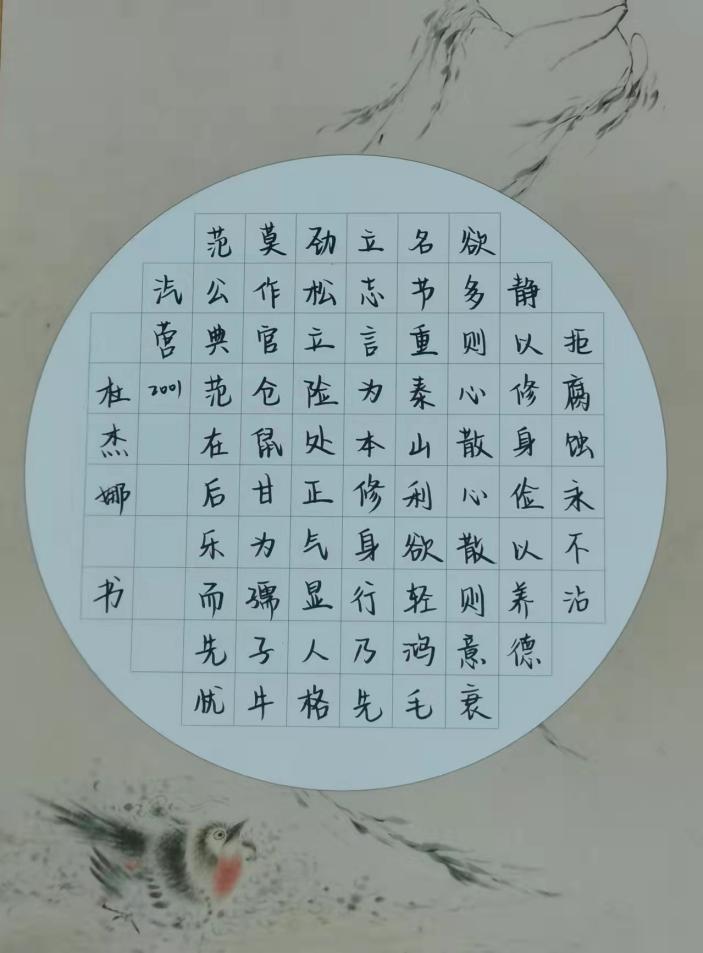 拒腐蚀永不沾
静以修身俭以养德
欲多则心散心散则意衰
名节重泰山利欲轻鸿毛
立志言为本修身行乃先
劲松立险处正气显人格
莫作官仓鼠甘为孺子牛
范公典范在后乐而先忧
汽营2001
杜杰娜 书